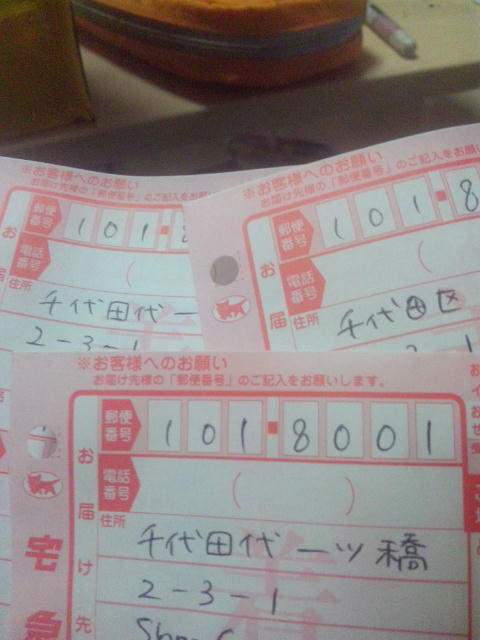 ※お客様へのお願い
お届け先様の「郵便番号」のご記入をお願い
郵便番号 101-8
電話番号 (
お届
住所
千代田代一
2-3-1
※お客様へのお願い
お届け先様の「郵便番号」のご記入をお願い
郵便番号 101-8
電話番号 (
お届
住所
千代田区
※お客様へのお願い
お届け先様の「郵便番号」のご記入をお願いします。
郵便番号 101-8001
電話番号 ( )
お届け先
住所
千代田代一ツ橋
2-3-1
宅急